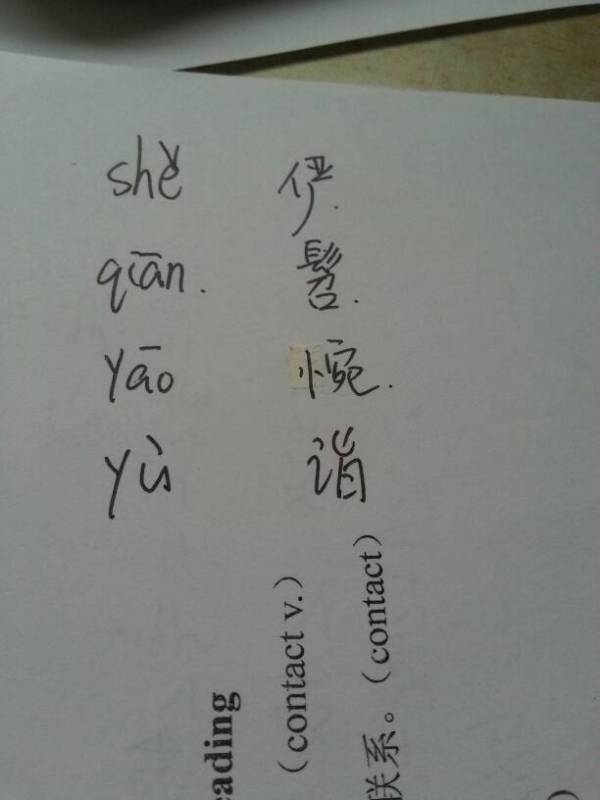 shě 俨.
qiān. 髫.
yāo 惋.
yù 诮
eading
(contact v.)
联系。(contact)
)